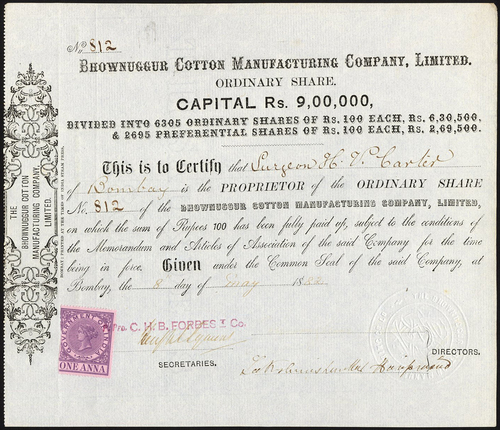 No 812
BHOWNUGGUR COTTON MANUFACTURING COMPANY, LIMITED.
ORDINARY SHARE.
CAPITAL Rs. 9,00,000,
DIVIDED INTO 6305 ORDINARY SHARES OF Rs. 100 EACH, Rs. 6,30,500,
& 2695 PREFERENTIAL SHARES OF Rs. 100 EACH, Rs. 2,69,500.
This is to Certify that Surgeon H. V. Carter
of Bombay is the PROPRIETOR of the ORDINARY SHARE
No. 812 of the BHOWNUGGUR COTTON MANUFACTURING COMPANY, LIMITED,
on which the sum of Rupees 100 has been fully paid up, subject to the conditions of
the Memorandum and Articles of Association of the said Company for the time
being in force. Given under the Common Seal of the said Company, at
Bombay, the 8 day of May 18
Pro. C. H. B. FORBES & Co.
SECRETARIES.
DIRECTORS.
THE
BHOWNUGGUR COTTON
MANUFACTURING COMPANY,
LIMITED.
GOVERNMENT OF INDIA
ONE ANNA